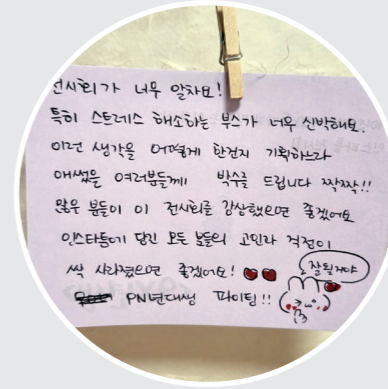 전시회가 너무 알차요!
특히 스트레스 해소하는 부스가 너무 신박해요.
이런 생각을 어떻게 한건지 기획하느라
애썼을 여러분들께 박수를 드립니다 짝짝!!
많은 분들이 이 전시회를 감상했으면 좋겠어요
인스타툰에 담긴 모든 분들의 고민과 걱정이
싹 사라졌으면 좋겠어요!
잘될거야
PN년대생 파이팅!!